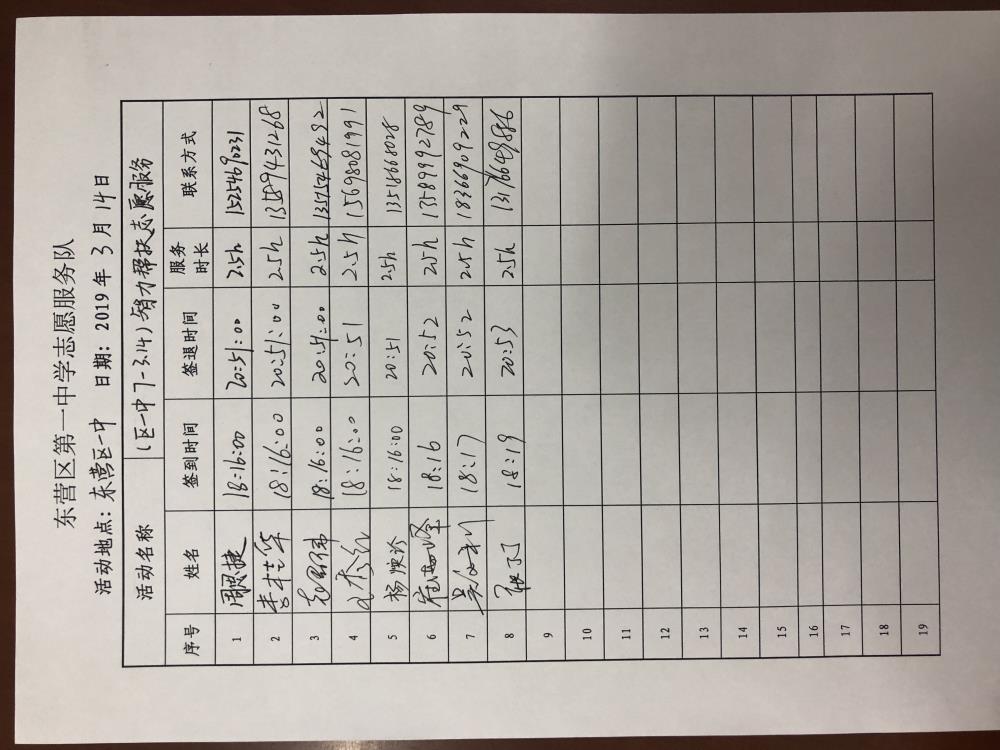 东营区第一中学志愿服务队
活动地点：东营区一中 日期：2019年3月14日
活动名称 （区一中7-3.14）智力帮扶志愿服务
序号 姓名 签到时间 签退时间 服务时长 联系方式
1 周思捷 18:16:00 20:51:00 2.5h 15254690231
2 李志华 18:16:00 20:51:00 2.5h 13589431268
3 18:16:00 20:51:00 2.5h 13754669492
4 18:16:00 20:51 2.5h 15698081991
5 杨焕珍 18:16:00 20:51 2.5h 13518668028
6 18:16 20:52 2.5h 13589992789
7 18:17 20:52 2.5h 18366909229
8 18:19 20:53 2.5h 13176649886
9
10
11
12
13
14
15
16
17
18
19